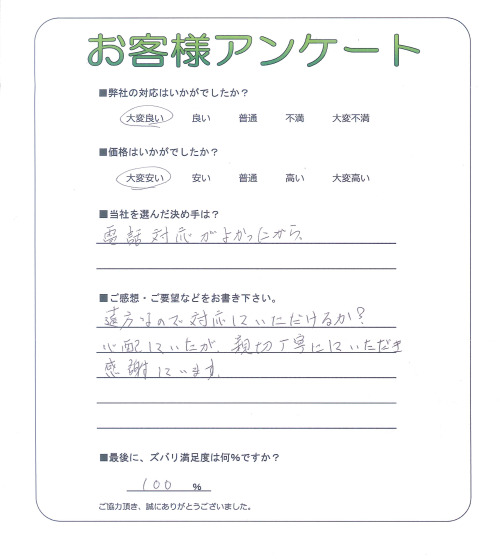 お客様アンケート
■弊社の対応はいかがでしたか？
大変良い 良い 普通 不満 大変不満
■価格はいかがでしたか？
大変安い 安い 普通 高い 大変高い
■当社を選んだ決め手は？
電話対応がよかったから、
■ご感想・ご要望などをお書き下さい。
遠方なので対応していただけるか?
心配していたが、親切丁寧にしていただき
感謝しています。
■最後に、ズバリ満足度は何％ですか？
100 ％
ご協力頂き、誠にありがとうございました。